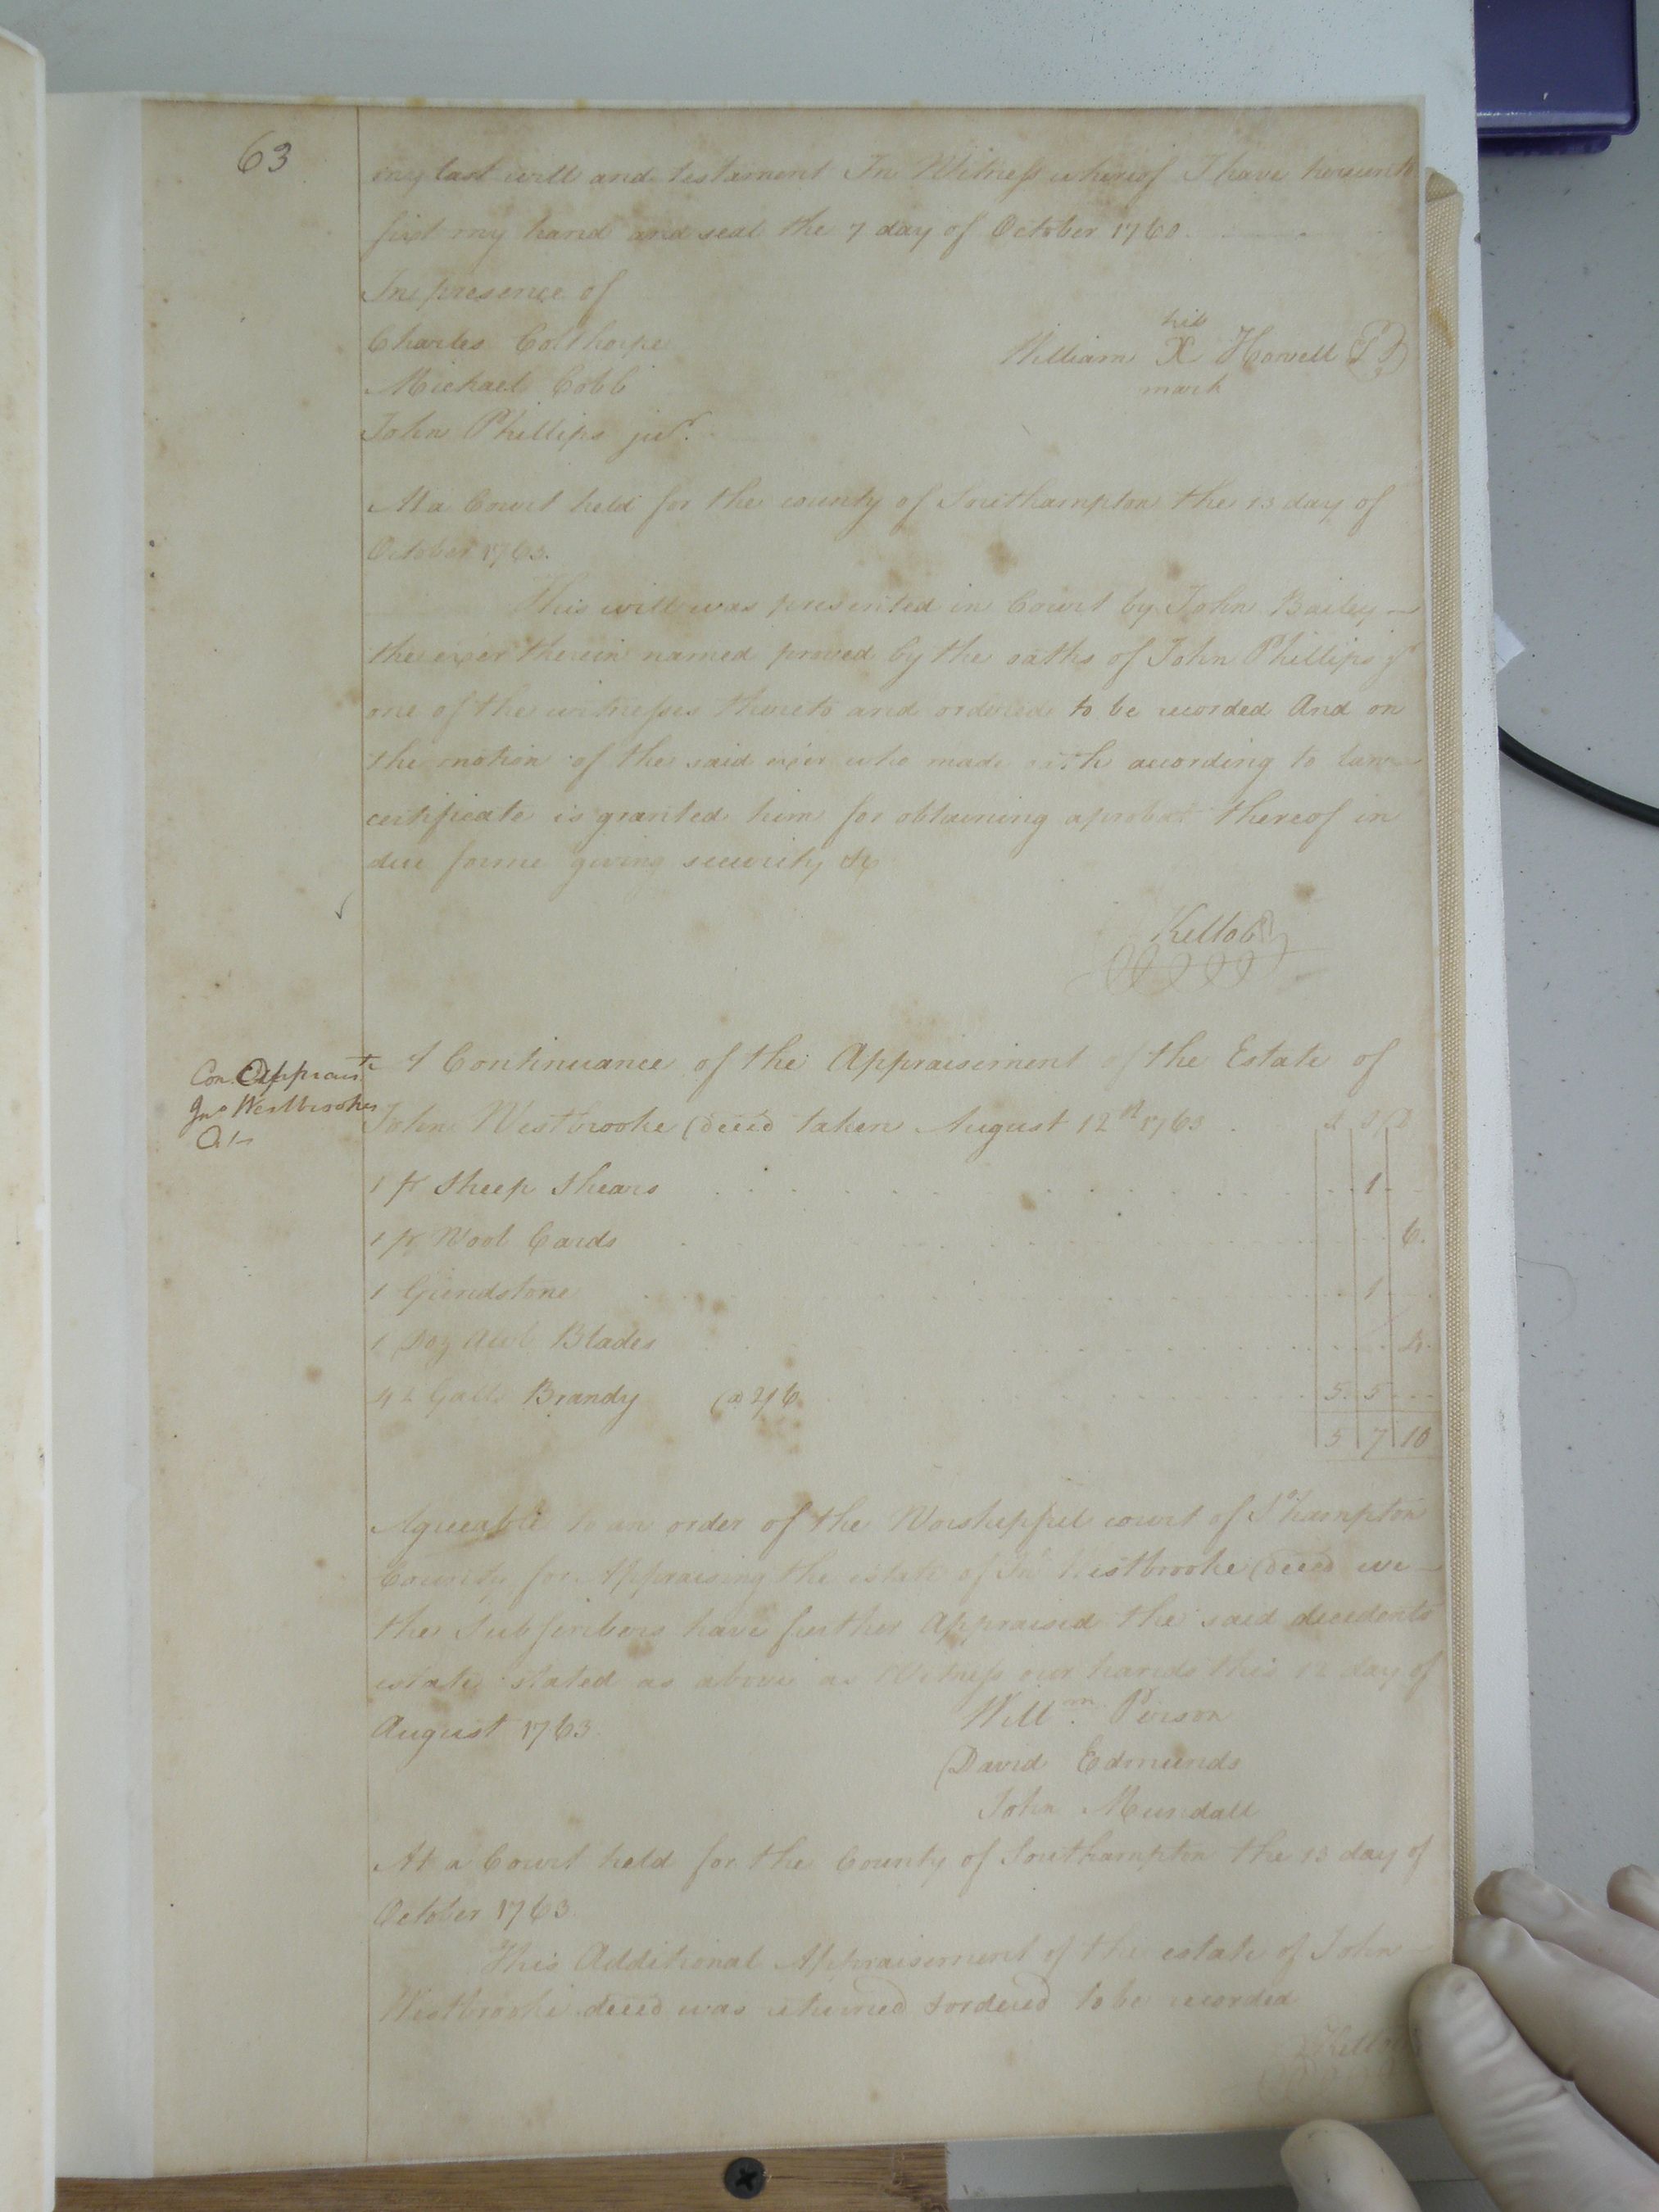 63
my last will and testament In Witness whereof I have hereunto
set my hand and seal the 7 day of October 1760.
In presence of
Charles Colthorpe
his
William X Howell
Michael Cobb
mark
John Phillips jur.
At a Court held for the county of Southampton the 13 day of
October 1763.
This will was presented in Court by John Bailey
the exer therein named proved by the oaths of John Phillips jr
one of the witnesses thereto and ordered to be recorded And on
the motion of the said exer who made oath according to law
certificate is granted him for obtaining a probat thereof in
due forme giving security &c
Con. Appraist
A Continuance of the Appraisement of the Estate of
Jno Westbrookes
John Westbrooke Deced taken August 12th 1763 £ S D
1 pr Sheep Shears 1
1 pr Wool Cards 6
1 Grindstone 1
1 Doz Awl Blades 4
42 Galls Brandy @ 2/6 5 5
5 7 10
Agreeable to an order of the Worshipful court of So hampton
County for Appraising the estate of Jno Westbrooke Deced we
the Subscribers have further Appraised the said decedents
estate stated as above as Witness our hands this 12 day of
August 1763.
Willm. Person
David Edmunds
John Mundall
At a Court held for the County of Southampton the 13 day of
October 1763
This Additional Appraisement of the estate of John
Westbrooke deced was returned & ordered to be recorded